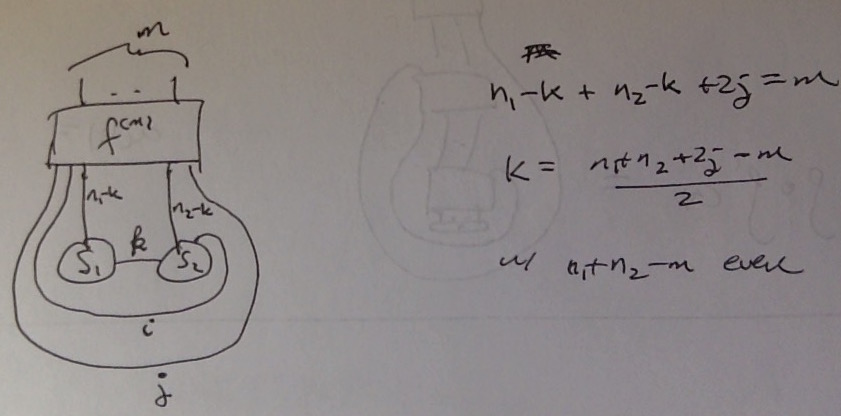 m
...
f^(m)
n₁-k
n₂-k
k
S₁
S₂
i
j
n₁-k + n₂-k +2j = m
k = (n₁+n₂+2j-m)/2
w/ n₁+n₂-m even